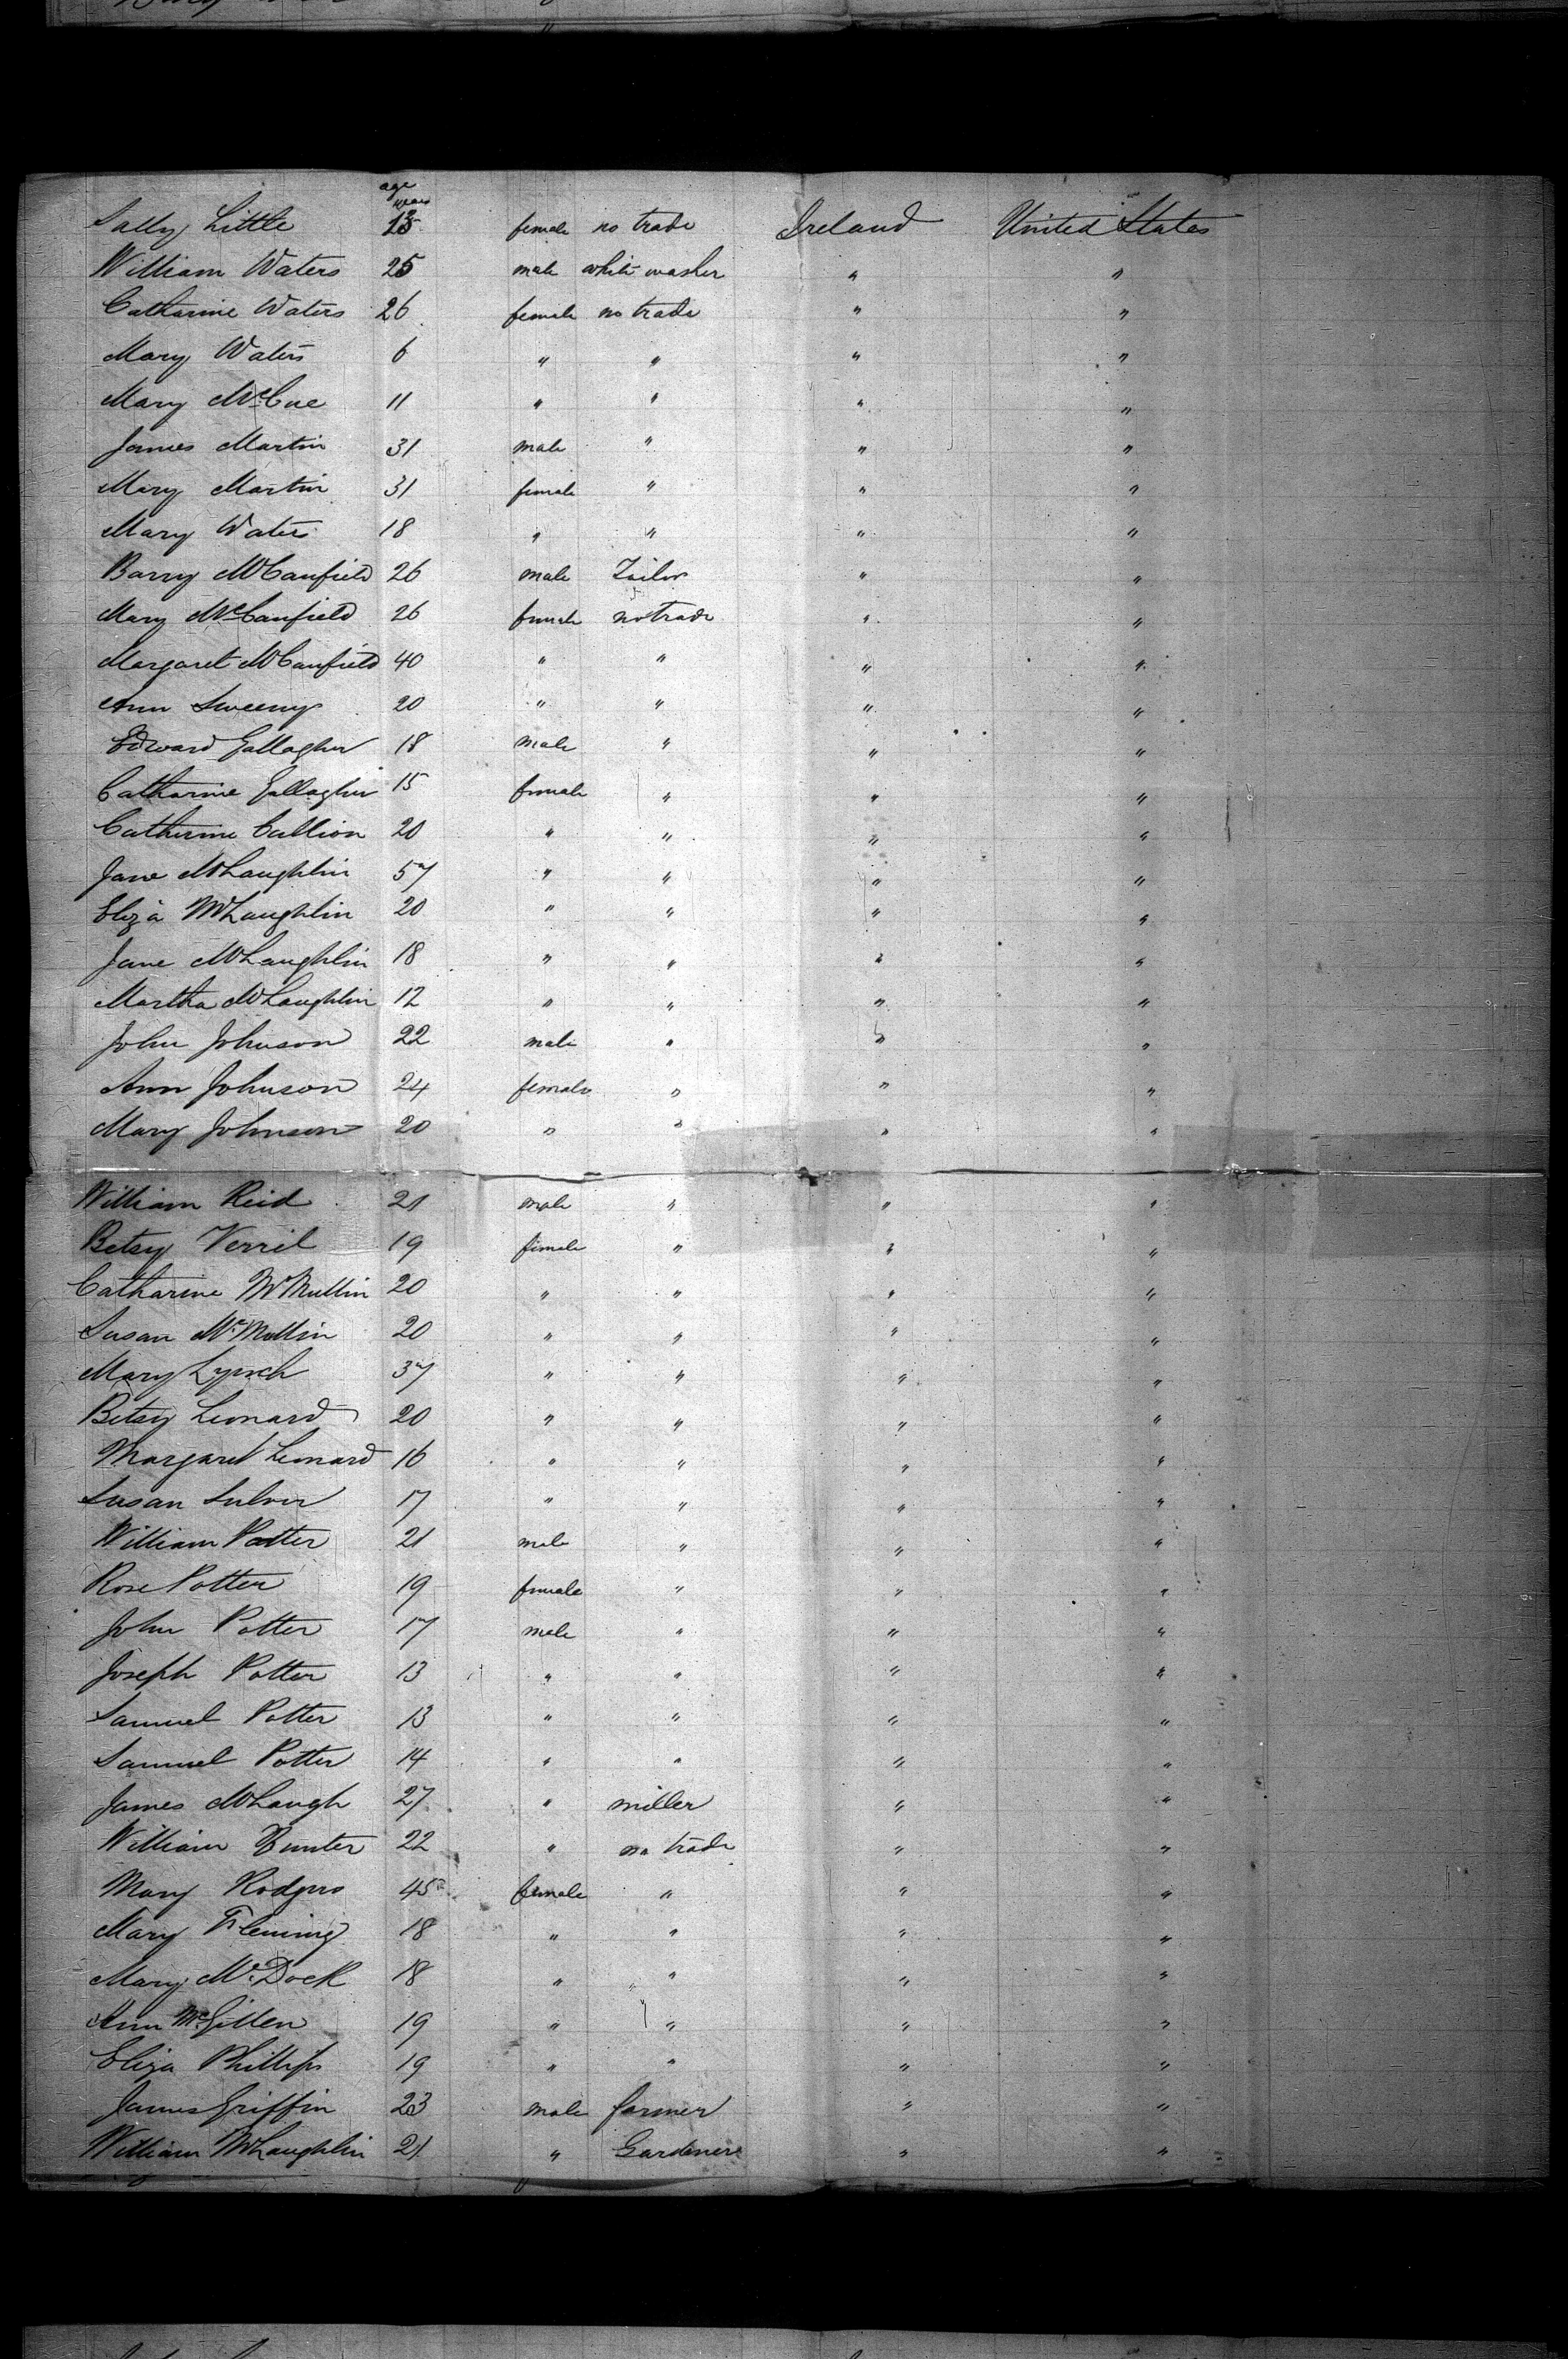 age
years
Sally Little 13 female no trade Ireland United States
William Waters 25 male white washer " "
Catharine Waters 26 female no trade " "
Mary Waters 6 " " " "
Mary McCue 11 " " " "
James Martin 31 male " " "
Mary Martin 31 female " " "
Mary Waters 18 " " " "
Barry McCanfield 26 male Tailor " "
Mary McCanfield 26 female no trade " "
Margaret McCanfield 40 " " " "
Ann Sweeny 20 " " " "
Edward Gallagher 18 male " " "
Catharine Gallagher 15 female " " "
Catherine Callion 20 " " " "
Jane McLaughlin 57 " " " "
Eliza McLaughlin 20 " " " "
Jane McLaughlin 18 " " " "
Martha McLaughlin 12 " " " "
John Johnson 22 male " " "
Ann Johnson 24 female " " "
Mary Johnson 20 " " " "
William Reid 21 male " " "
Betsy Verril 19 female " " "
Catharine McMullin 20 " " " "
Susan McMullin 20 " " " "
Mary Lynch 37 " " " "
Betsy Leonard 20 " " " "
Margaret Leonard 16 " " " "
Susan 17 " " " "
William Potter 21 male " " "
Rose Potter 19 female " " "
John Potter 17 male " " "
Joseph Potter 13 " " " "
Samuel Potter 13 " " " "
Samuel Potter 14 " " " "
James McLaugh 27 " miller " "
William Hunter 22 " no trade " "
Mary Rodgers 45 female " " "
Mary Fleming 18 " " " "
Mary McDock 18 " " " "
Ann McGillen 19 " " " "
Eliza Phillips 19 " " " "
James Griffin 23 male farmer " "
William McLaughlin 21 " Gardener " "